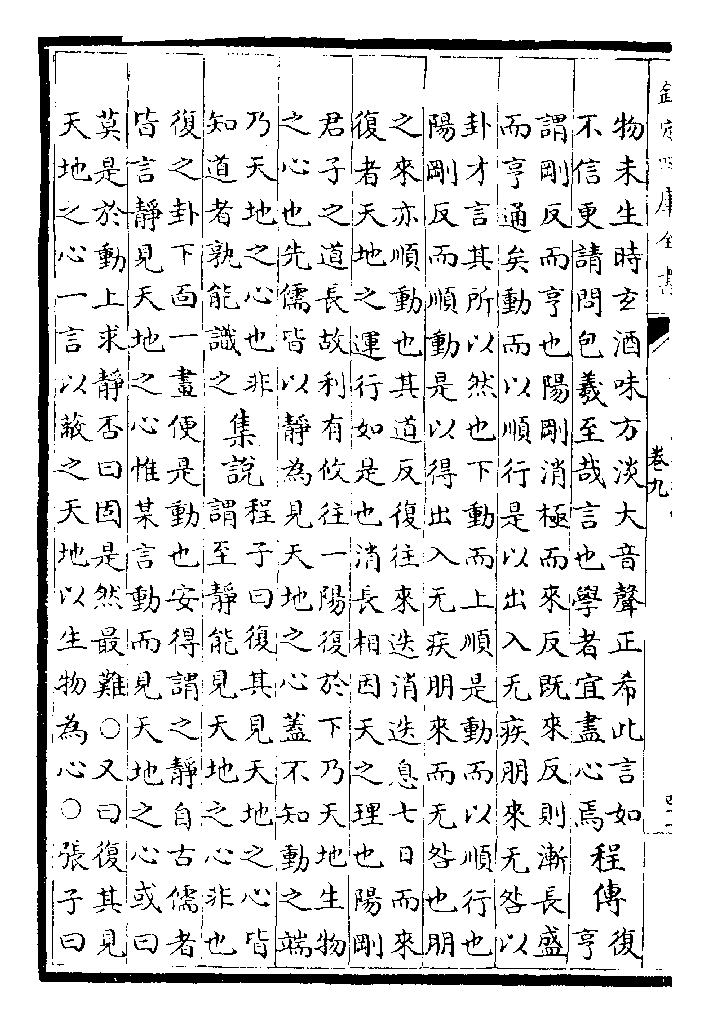 欽定四庫全書
卷九
物未生時玄酒味方淡大音聲正希此言如
不信更請問包羲至哉言也學者宜盡心焉
程傳
復
亨
謂剛反而亨也陽剛消極而來反既來反則漸長盛
而亨通矣動而以順行是以出入无疾朋來无咎以
卦才言其所以然也下動而上順是動而以順行也
陽剛反而順動是以得出入无疾朋來而无咎也朋
之來亦順動也其道反復往來迭消迭息七日而來
復者天地之運行如是也消長相因天之理也陽剛
君子之道長故利有攸往一陽復於下乃天地生物
之心也先儒皆以靜為見天地之心蓋不知動之端
乃天地之心也非
知道者孰能識之
集說
程子曰復其見天地之心皆
謂至靜能見天地之心非也
復之卦下面一畫便是動也安得謂之靜自古儒者
皆言靜見天地之心惟某言動而見天地之心或曰
莫是於動上求靜否曰固是然最難○又曰復其見
天地之心一言以蔽之天地以生物為心○張子曰